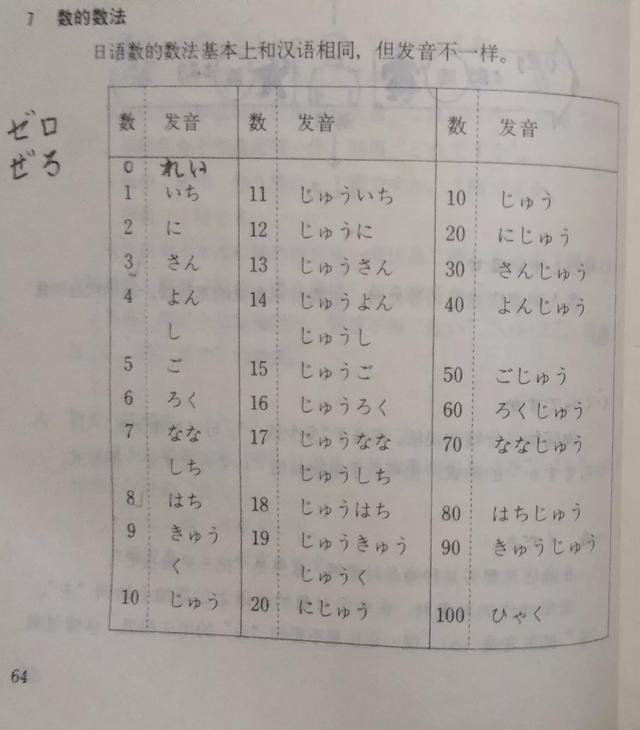 7 数的数法
日语数的数法基本上和汉语相同，但发音不一样。
ゼロ
ぜろ
数 发音 数 发音 数 发音
0 れい
1 いち 11 じゅういち 10 じゅう
2 に 12 じゅうに 20 にじゅう
3 さん 13 じゅうさん 30 さんじゅう
4 よん 14 じゅうよん 40 よんじゅう
し じゅうし
5 ご 15 じゅうご 50 ごじゅう
6 ろく 16 じゅうろく 60 ろくじゅう
7 なな 17 じゅうなな 70 ななじゅう
しち じゅうしち
8 はち 18 じゅうはち 80 はちじゅう
9 きゅう 19 じゅうきゅう 90 きゅうじゅう
く じゅうく
10 じゅう 20 にじゅう 100 ひゃく
64